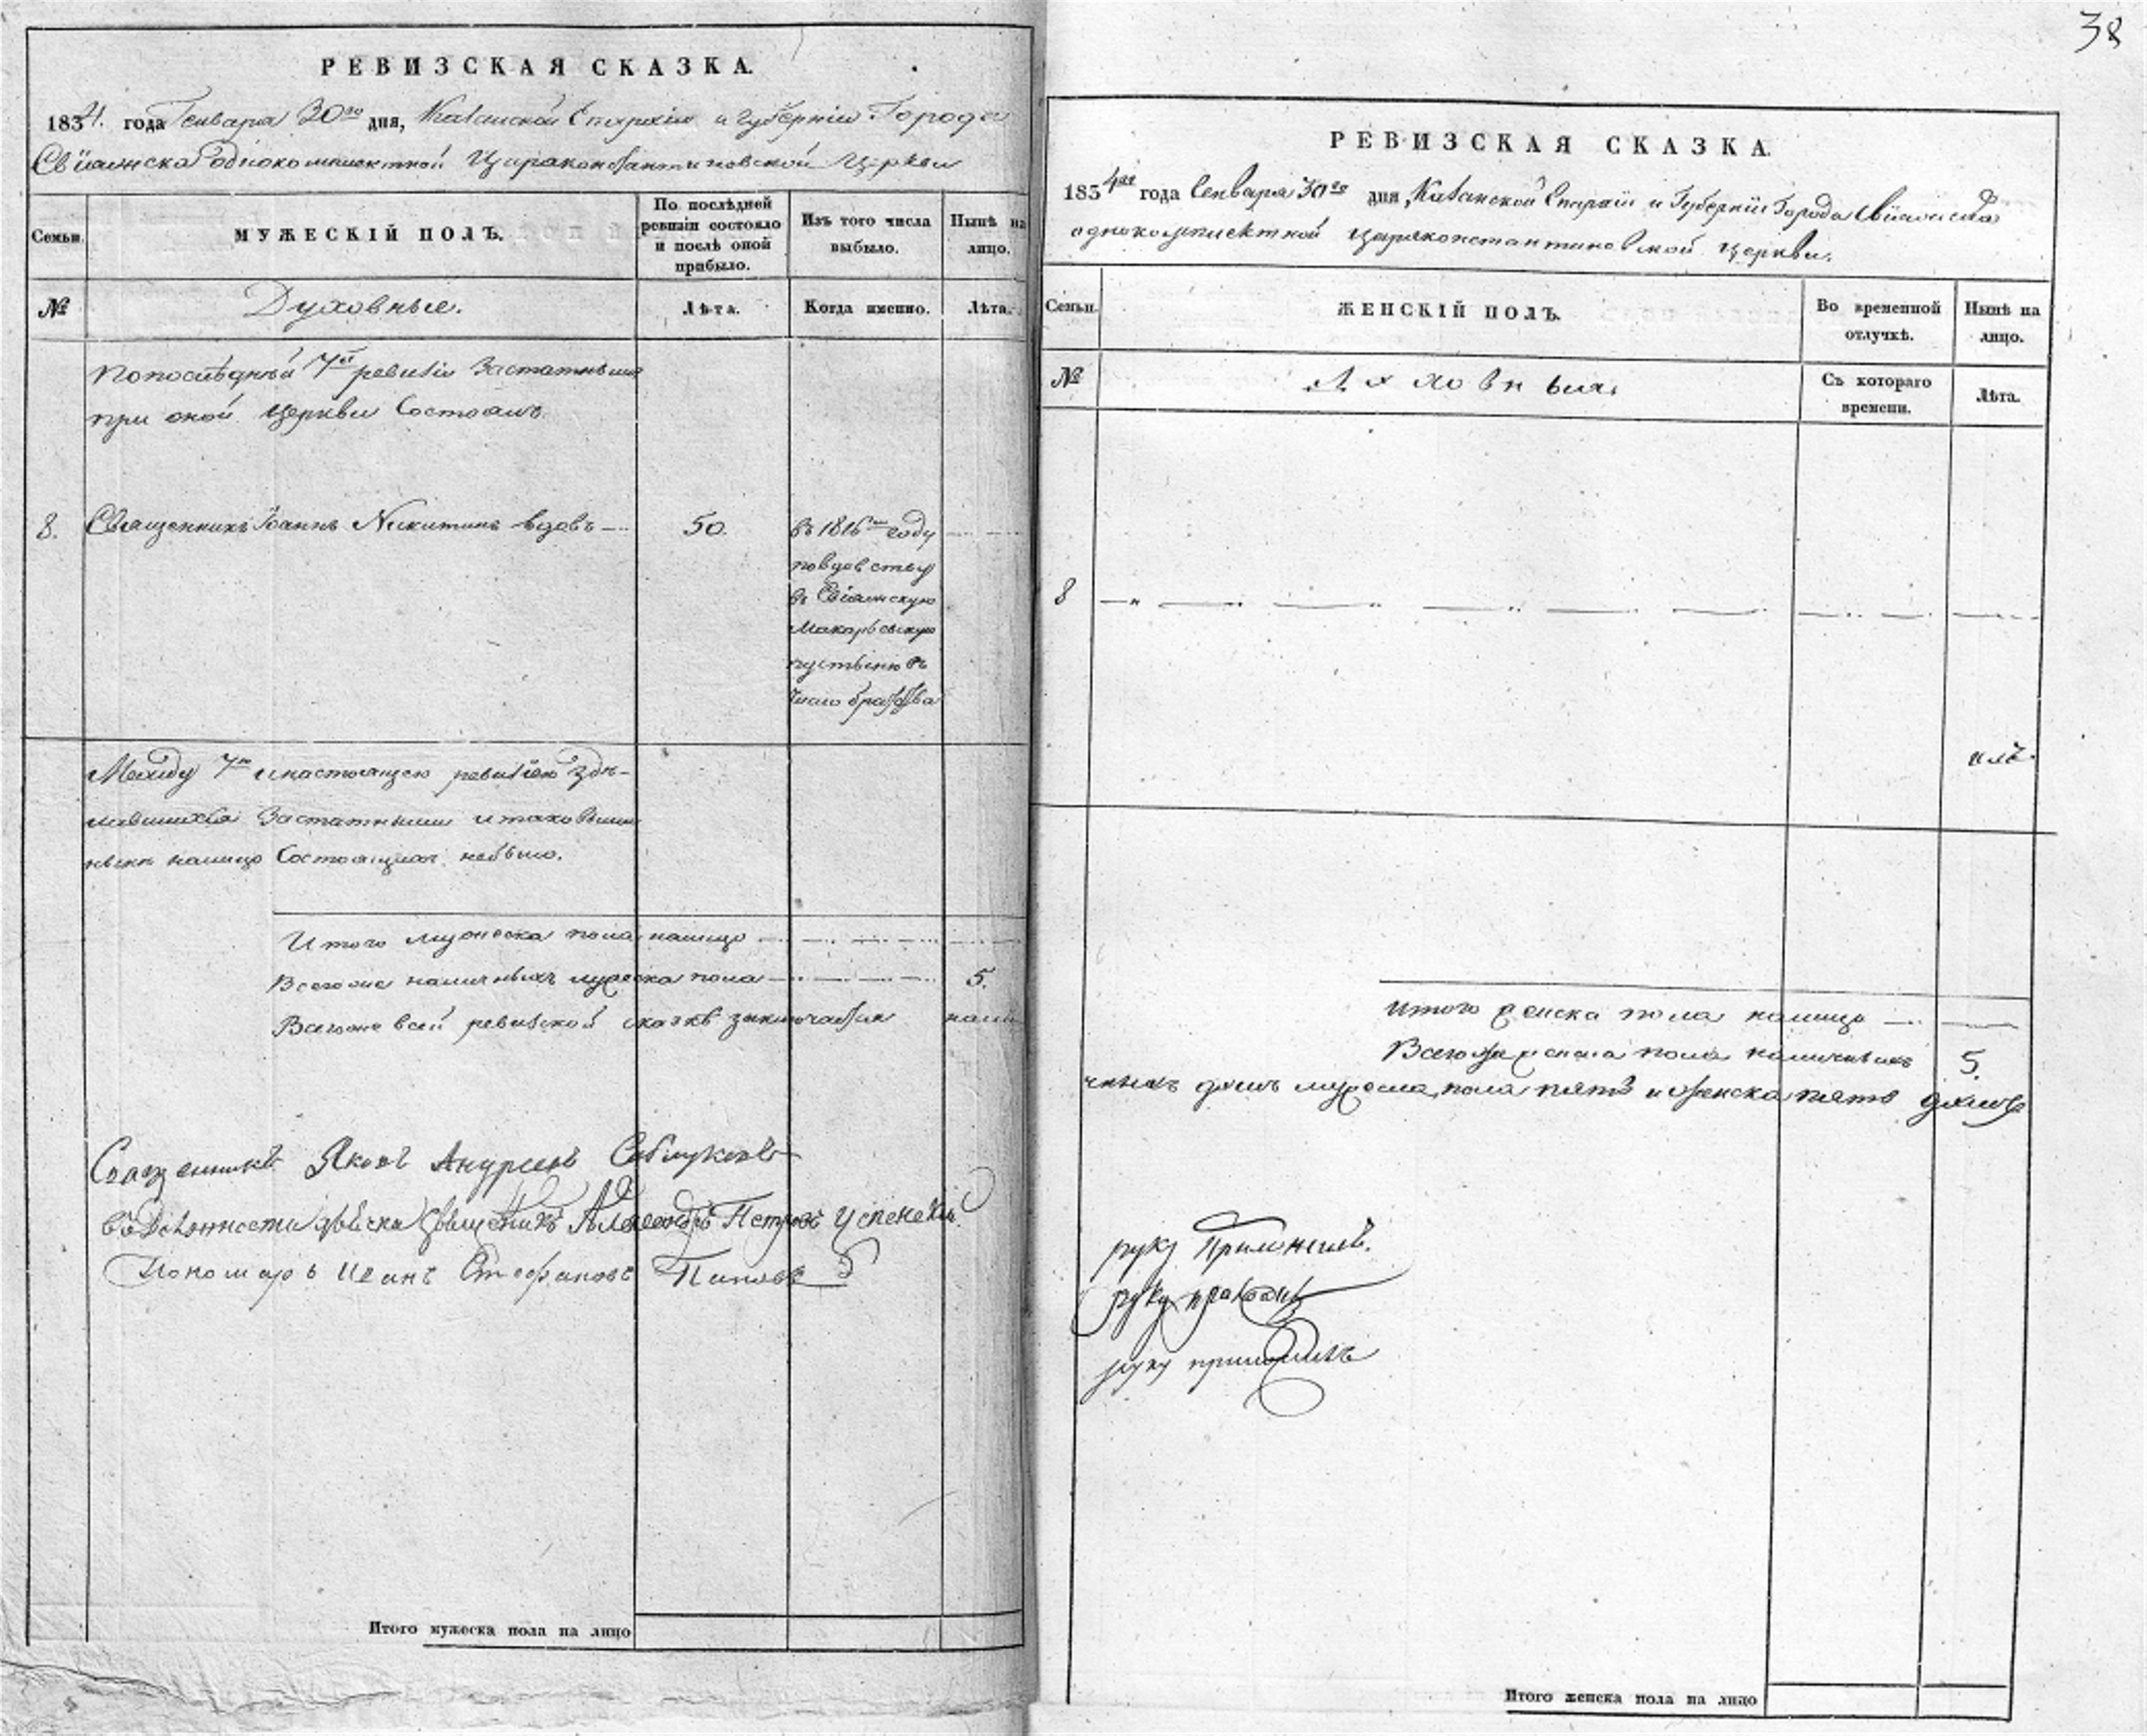 РЕВИЗСКАЯ СКАЗКА.
1834. года Генваря 30го дня, Казанской Епархіи и Губерніи Города
Свіяжска однокомплектной Цареконстантиновской Церкви
Семьи.
МУЖЕСКІЙ ПОЛЪ.
По послѣдней
ревизіи состояло
и послѣ оной
прибыло.
Изъ того числа
выбыло.
Нынѣ на
лицо.
№
Духовные.
Лѣта.
Когда именно.
Лѣта.
По последней 7й ревизіи Застатным
при оной церкви Состоялъ
8.
Священникъ Іоаннъ Никитинъ вдовъ
50.
въ 1816м году
по вдовству
въ Свіяжскую
Макарьевскую
пустыню въ
число братства
Между 7ю и настоящею ревизіею здѣ-
лавшихся Застатными и таковыми
нынѣ налицо Состоящихъ небыло.
Итого мужеска пола налицо
Всего же наличныхъ мужеска пола 5.
Всего же в сей ревизской сказкѣ заключается нали
Священникъ Яковъ Андреевъ Саблуковъ
въ Должности дьячка Священникъ Александръ Петровъ Успенскій
Пономарь Иванъ Стефановъ Поповъ
Итого мужеска пола на лицо
38
РЕВИЗСКАЯ СКАЗКА.
1834го года Генваря 30го дня, Казанской Епархіи и Губерніи Города Свіяжска
однокомплектной Цареконстантиновской Церкви.
Семьи.
ЖЕНСКІЙ ПОЛЪ.
Во временной
отлучкѣ.
Нынѣ на
лицо.
№
Духовныя.
Съ котораго
времени.
Лѣта.
8
Итого женска пола налицо
Всего женска пола наличныхъ 5.
чныхъ душъ мужеска пола пять и женска пять душъ
руку Приложилъ.
руку приложилъ
руку приложилъ
Итого женска пола на лицо